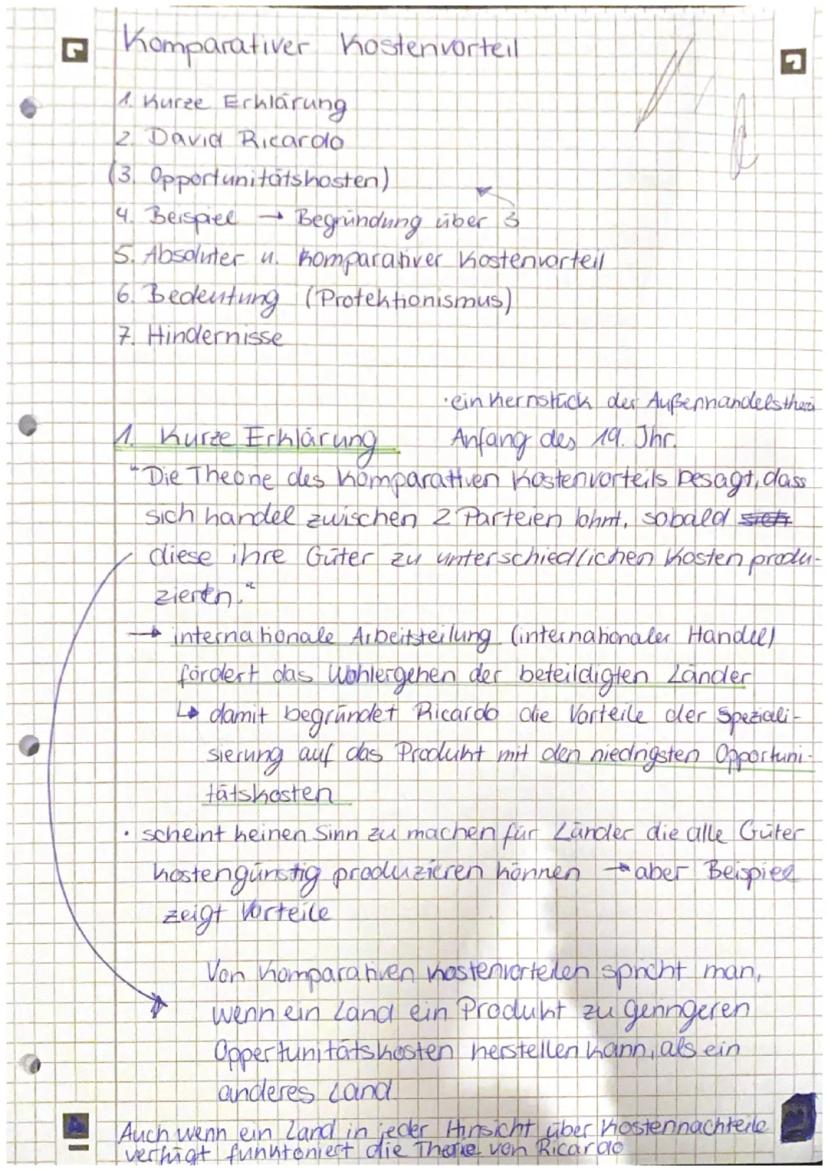 Komparativer Kostenvorteil
1. Kurze Erklärung
2. David Ricardo
(3. Opportunitätskosten)
4. Beispiel → Begründung über 3
5. Absoluter u. Komparativer Kostenvorteil
6. Bedeutung (Protektionismus)
7. Hindernisse
·ein Kernstück der Außenhandelstheo
1. Kurze Erklärung Anfang des 19. Jhr.
"Die Theorie des Komparativen Kostenvorteils besagt, dass
sich handel zwischen 2 Parteien lohnt, sobald
diese ihre Güter zu unterschiedlichen Kosten produ-
zieren."
→ internationale Arbeitsteilung (internationaler Handel)
fördert das Wohlergehen der beteildigten Länder
↳ damit begründet Ricardo die Vorteile der Speziali-
sierung auf das Produkt mit den niedrigsten Opportuni-
tätskosten
· scheint keinen Sinn zu machen für Länder die alle Güter
kostengünstig produzieren können → aber Beispiel
zeigt Vorteile
Von komparativen Kostenvorteilen spricht man,
wenn ein Land ein Produkt zu geringeren
Oppertunitätskosten herstellen kann, als ein
anderes Land
Auch wenn ein Land in jeder Hinsicht über Kostennachteile
verfügt funktoniert die Theorie von Ricardo